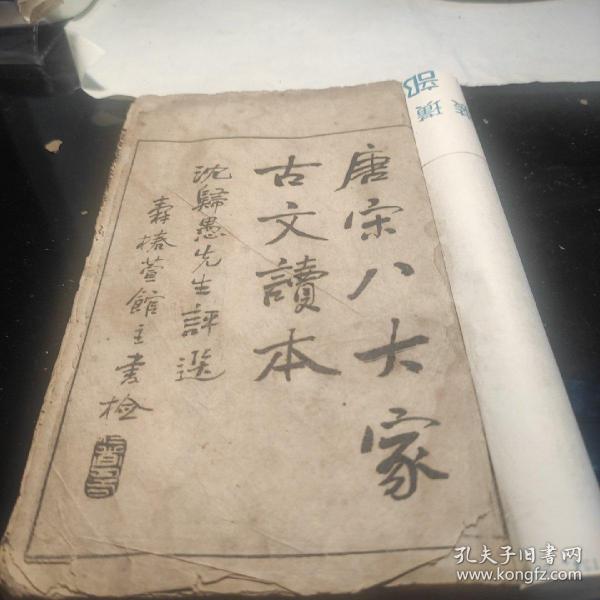 唐宋八大家
古文讀本
沈歸愚先生評選
椿萱館主書檢
部
璜
孔夫子旧书网
www.kongfz.com